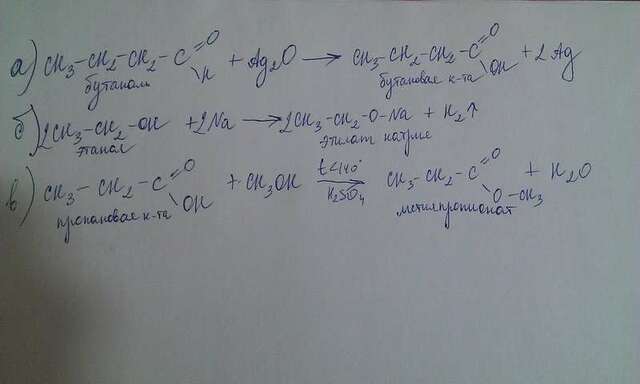 а) CH3-CH2-CH2-C=O H + Ag2O → CH3-CH2-CH2-C=O OH + 2Ag
бутаналь бутановая к-та
б) 2CH3-CH2-OH + 2Na → 2CH3-CH2-O-Na + H2↑
этанол этилат натрия
в) CH3-CH2-C=O OH + CH3OH t<140° H2SO4 → CH3-CH2-C=O O-CH3 + H2O
пропановая к-та метилпропионат